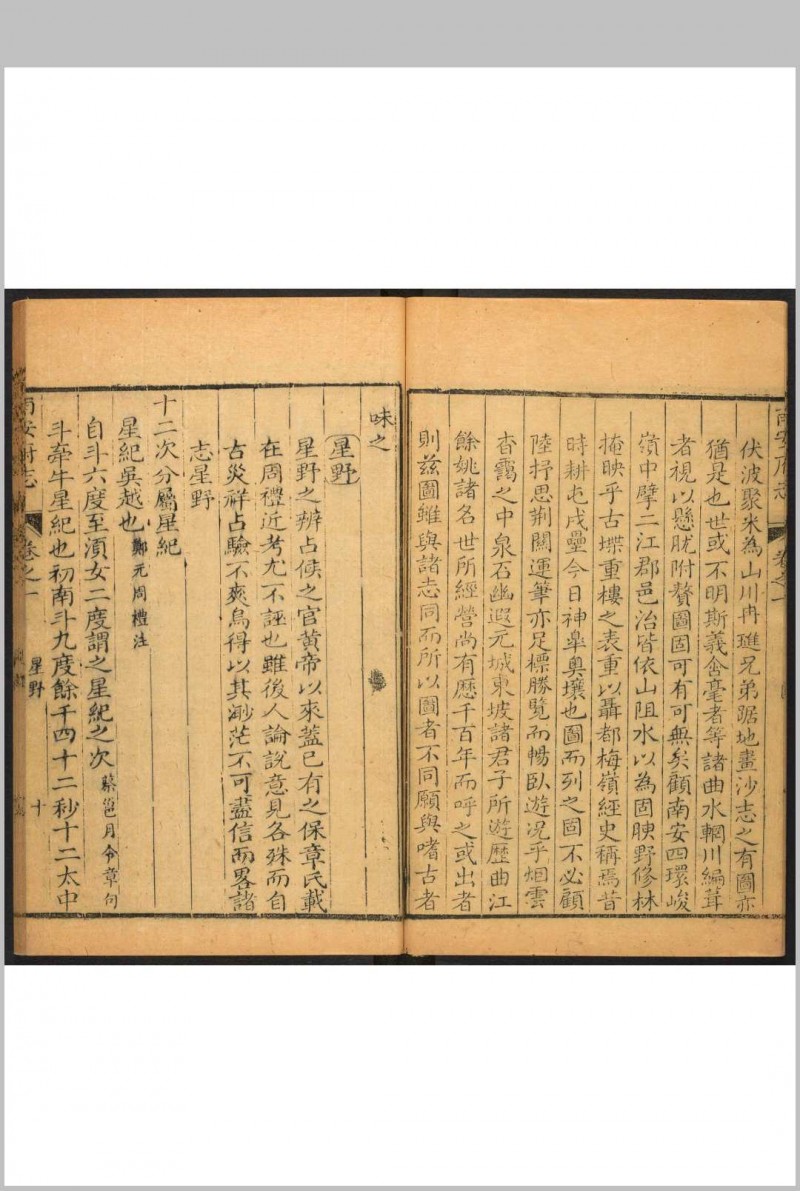 南安府志 卷之一
伏波聚米為山川冉璡兄弟踞地畫沙志之有圖亦
猶是也世或不明斯義舍毫者等諸曲水輞川編葺
者視以懸肬附贅圖固可有可無矣顧南安四環峻
嶺中擘二江郡邑治皆依山阻水以為固腴野修林
掩映乎古堞重樓之表重以聶都梅嶺經史稱焉昔
時耕屯戍壘今日神臯奧壤也圖而列之固不必顧
陸抒思荆關運筆亦足標勝覽而暢臥遊况乎烟雲
杳靄之中泉石幽遐元城東坡諸君子所遊歷曲江
餘姚諸名世所經營尚有歷千百年而呼之或出者
則兹圖雖與諸志同而所以圖者不同願與嗜古者
味之
星野
星野之辨占候之官黄帝以來葢已有之保章氏載
在周禮近考尤不誣也雖後人論說意見各殊而自
古災祥占驗不爽烏得以其渺茫不可盡信而畧諸
志星野
十二次分屬星紀
星紀吳越也 鄭元周禮注
自斗六度至湏女二度謂之星紀之次 蔡邕月令章句
斗牽牛星紀也初南斗九度餘千四十二秒十二太中
南安府志 卷之一 星野 十